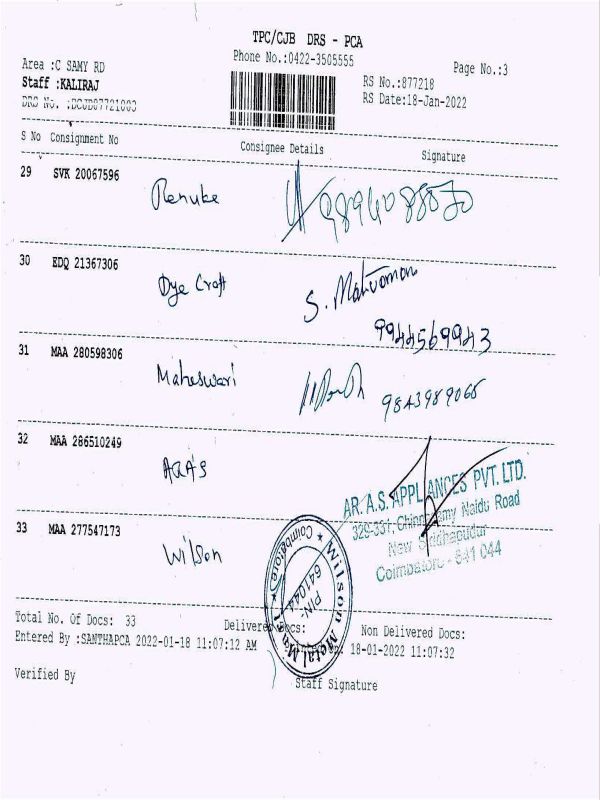 TPC/CJB DRS - PCA
Phone No.:0422-3505555
Page No.:3
Area :C SAMY RD
Staff :KALIRAJ
RS No.:877218
RS Date:18-Jan-2022
DRS No.
S No Consignment No Consignee Details Signature
29 SVK 20067596 Renuke
30 EDQ 21367306 Dye Craft
9944569943
31 MAA 280598306 Maheswari
9843989065
32 MAA 286510249
AR.A.S. APPLIANCES PVT. LTD.
Naidu Road
New Siddhapudur
Coimbatore - 641 044
33 MAA 277547173 Wilson
Wilson Metal
Coimbatore
PIN 641044
Total No. Of Docs: 33 Delivered Docs: Non Delivered Docs:
Entered By :SANTHAPCA 2022-01-18 11:07:12 AM 18-01-2022 11:07:32
Verified By Staff Signature